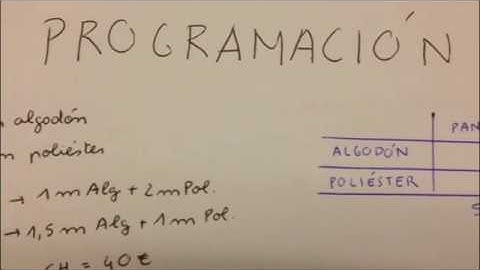 PROGRAMACIÓN
algodón
poliéster
→ 1 m Alg + 2 m Pol.
→ 1,5 m Alg + 1 m Pol.
CH = 40 €
PAN
ALGODÓN
POLIÉSTER